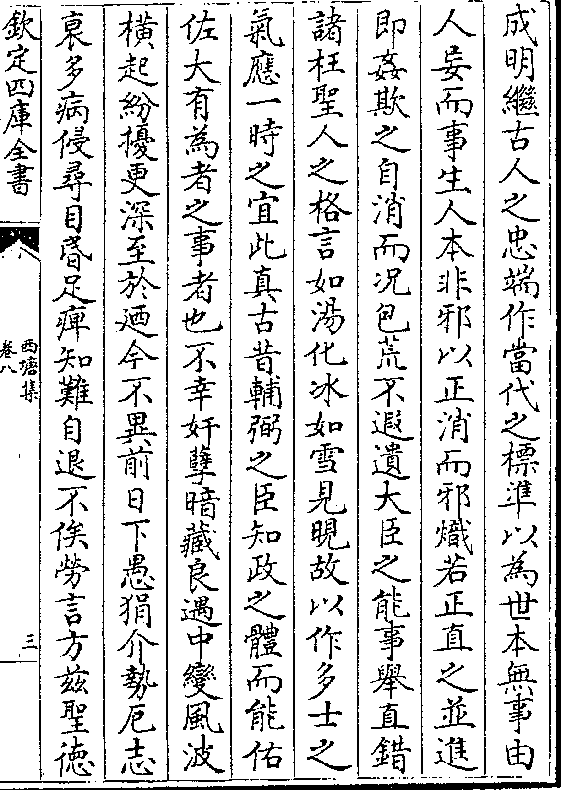 成明繼古人之忠端作當代之標準以為世本無事由
人妄而事生人本非邪以正消而邪熾若正直之並進
即姦欺之自消而况包荒不遐遺大臣之能事舉直錯
諸枉聖人之格言如湯化冰如雪見晛故以作多士之
氣應一時之宜此真古昔輔弼之臣知政之體而能佑
佐大有為者之事者也不幸奸孽暗藏良遇中變風波
橫起紛擾更深至於廼今不異前日下愚狷介勢厄志
衰多病侵尋目昏足痺知難自退不俟勞言方兹聖徳
欽定四庫全書
西塘集
卷八
三